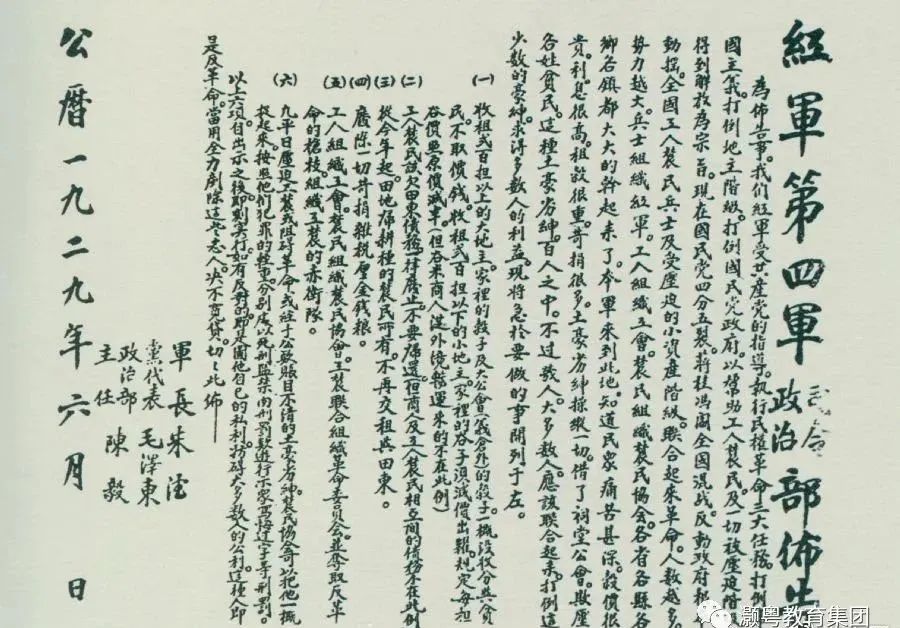 紅軍第四軍司令部政治部佈告
為佈告事。我們紅軍受共產黨的指導。執行民權革命三大任務。打倒
國主義。打倒地主階級。打倒國民黨政府。以幫助工人農民及一切被壓迫階級
得到解放為宗旨。現在國民黨四分五裂。蔣桂馮閻全國混戰。反動政府根
動搖。全國工人農民兵士及受壓迫的小資產階級。聯合起來革命。人數越多。
勢力越大。兵士組織紅軍。工人組織工會。農民組織農民協會。各省各縣各
鄉各鎮都大大的幹起來了。本軍來到此地。知道民眾痛苦甚深。穀價很
貴。利息很高。租穀很重。苛捐很多。土豪劣紳操縱一切。借了祠堂公會。欺壓
各姓貧民。這種土豪劣紳。百人之中。不過數人。大多數人。應該聯合起來。打倒這
少數的豪紳。求得多數人的利益。現將急於要做的事開列于左。
(一) 收租弍百担以上的大地主。家裡的穀子及大公會(義倉外)的穀子一概沒收分與貧
民。不取價錢。收租弍百担以下的小地主。家裡的谷子沒減價出糶。規定每担
谷價照原價減半。(但谷米商人從外境販運來的不在此例)
(二) 工人農民該欠田東債務。一律廢止。不要歸還。(但商人及工人農民相互間的債務不在此例
(三) 從今年起。田地歸耕種的農民所有。不再交租與田東。
(四) 廢除一切苛捐雜稅厘金錢粮。
(五) 工人組織工會。農民組織農民協會。工農聯合組織革命委員會。並奪取反革
命的槍枝。組織工農的赤衛隊。
(六) 凡平日壓迫工農或阻碍革命。或經手公款賬目不清的土豪劣紳。農民協會可以把他一概
捉起來。按照他們犯罪的輕重。分別處以死刑監禁肉刑罰款遊行示眾寫悔过字等刑罰。
以上六項自出示之後。即刻实行。如有反對的。即是圖他自己的私利。妨碍大多數人的公利。這種即
是反革命。當用全力剷除。這些人。決不寬貸。切切此佈
軍長 朱德
黨代表 毛澤東
政治部主任 陳毅
公曆一九二九年六月 日
灏粤教育集团